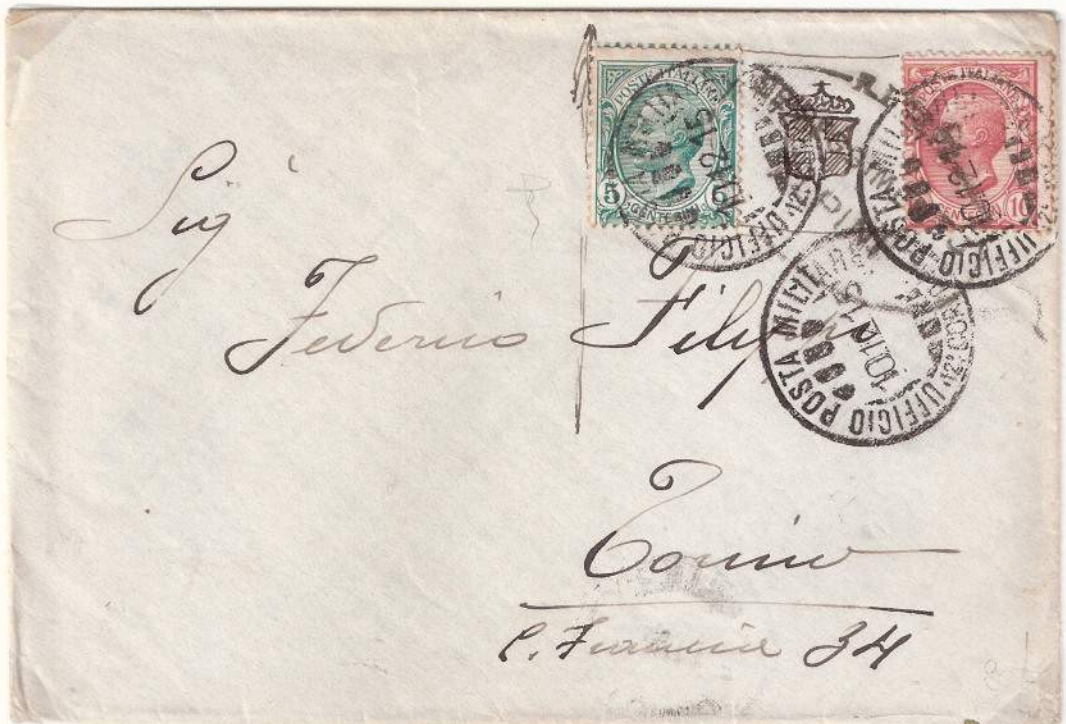 POSTE ITALIANE
5
CENTESIMI
POSTE ITALIANE
10
UFFICIO POSTA MILITARE
10.12.15
UFFICIO POSTA MILITARE
10.12.15
UFFICIO POSTA MILITARE
10.12.15
Sig
Federico Filippi
Torino
C. Francia 34